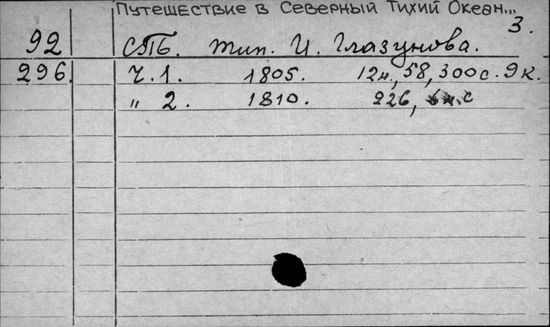 Путешествие в Северный Тихий Океан...
3.
92 СПБ. тип. И. Глазунова.
296. Ч. 1. 1805. 12н, 58, 300 с. 9 к.
„ 2. 1810. 226, с